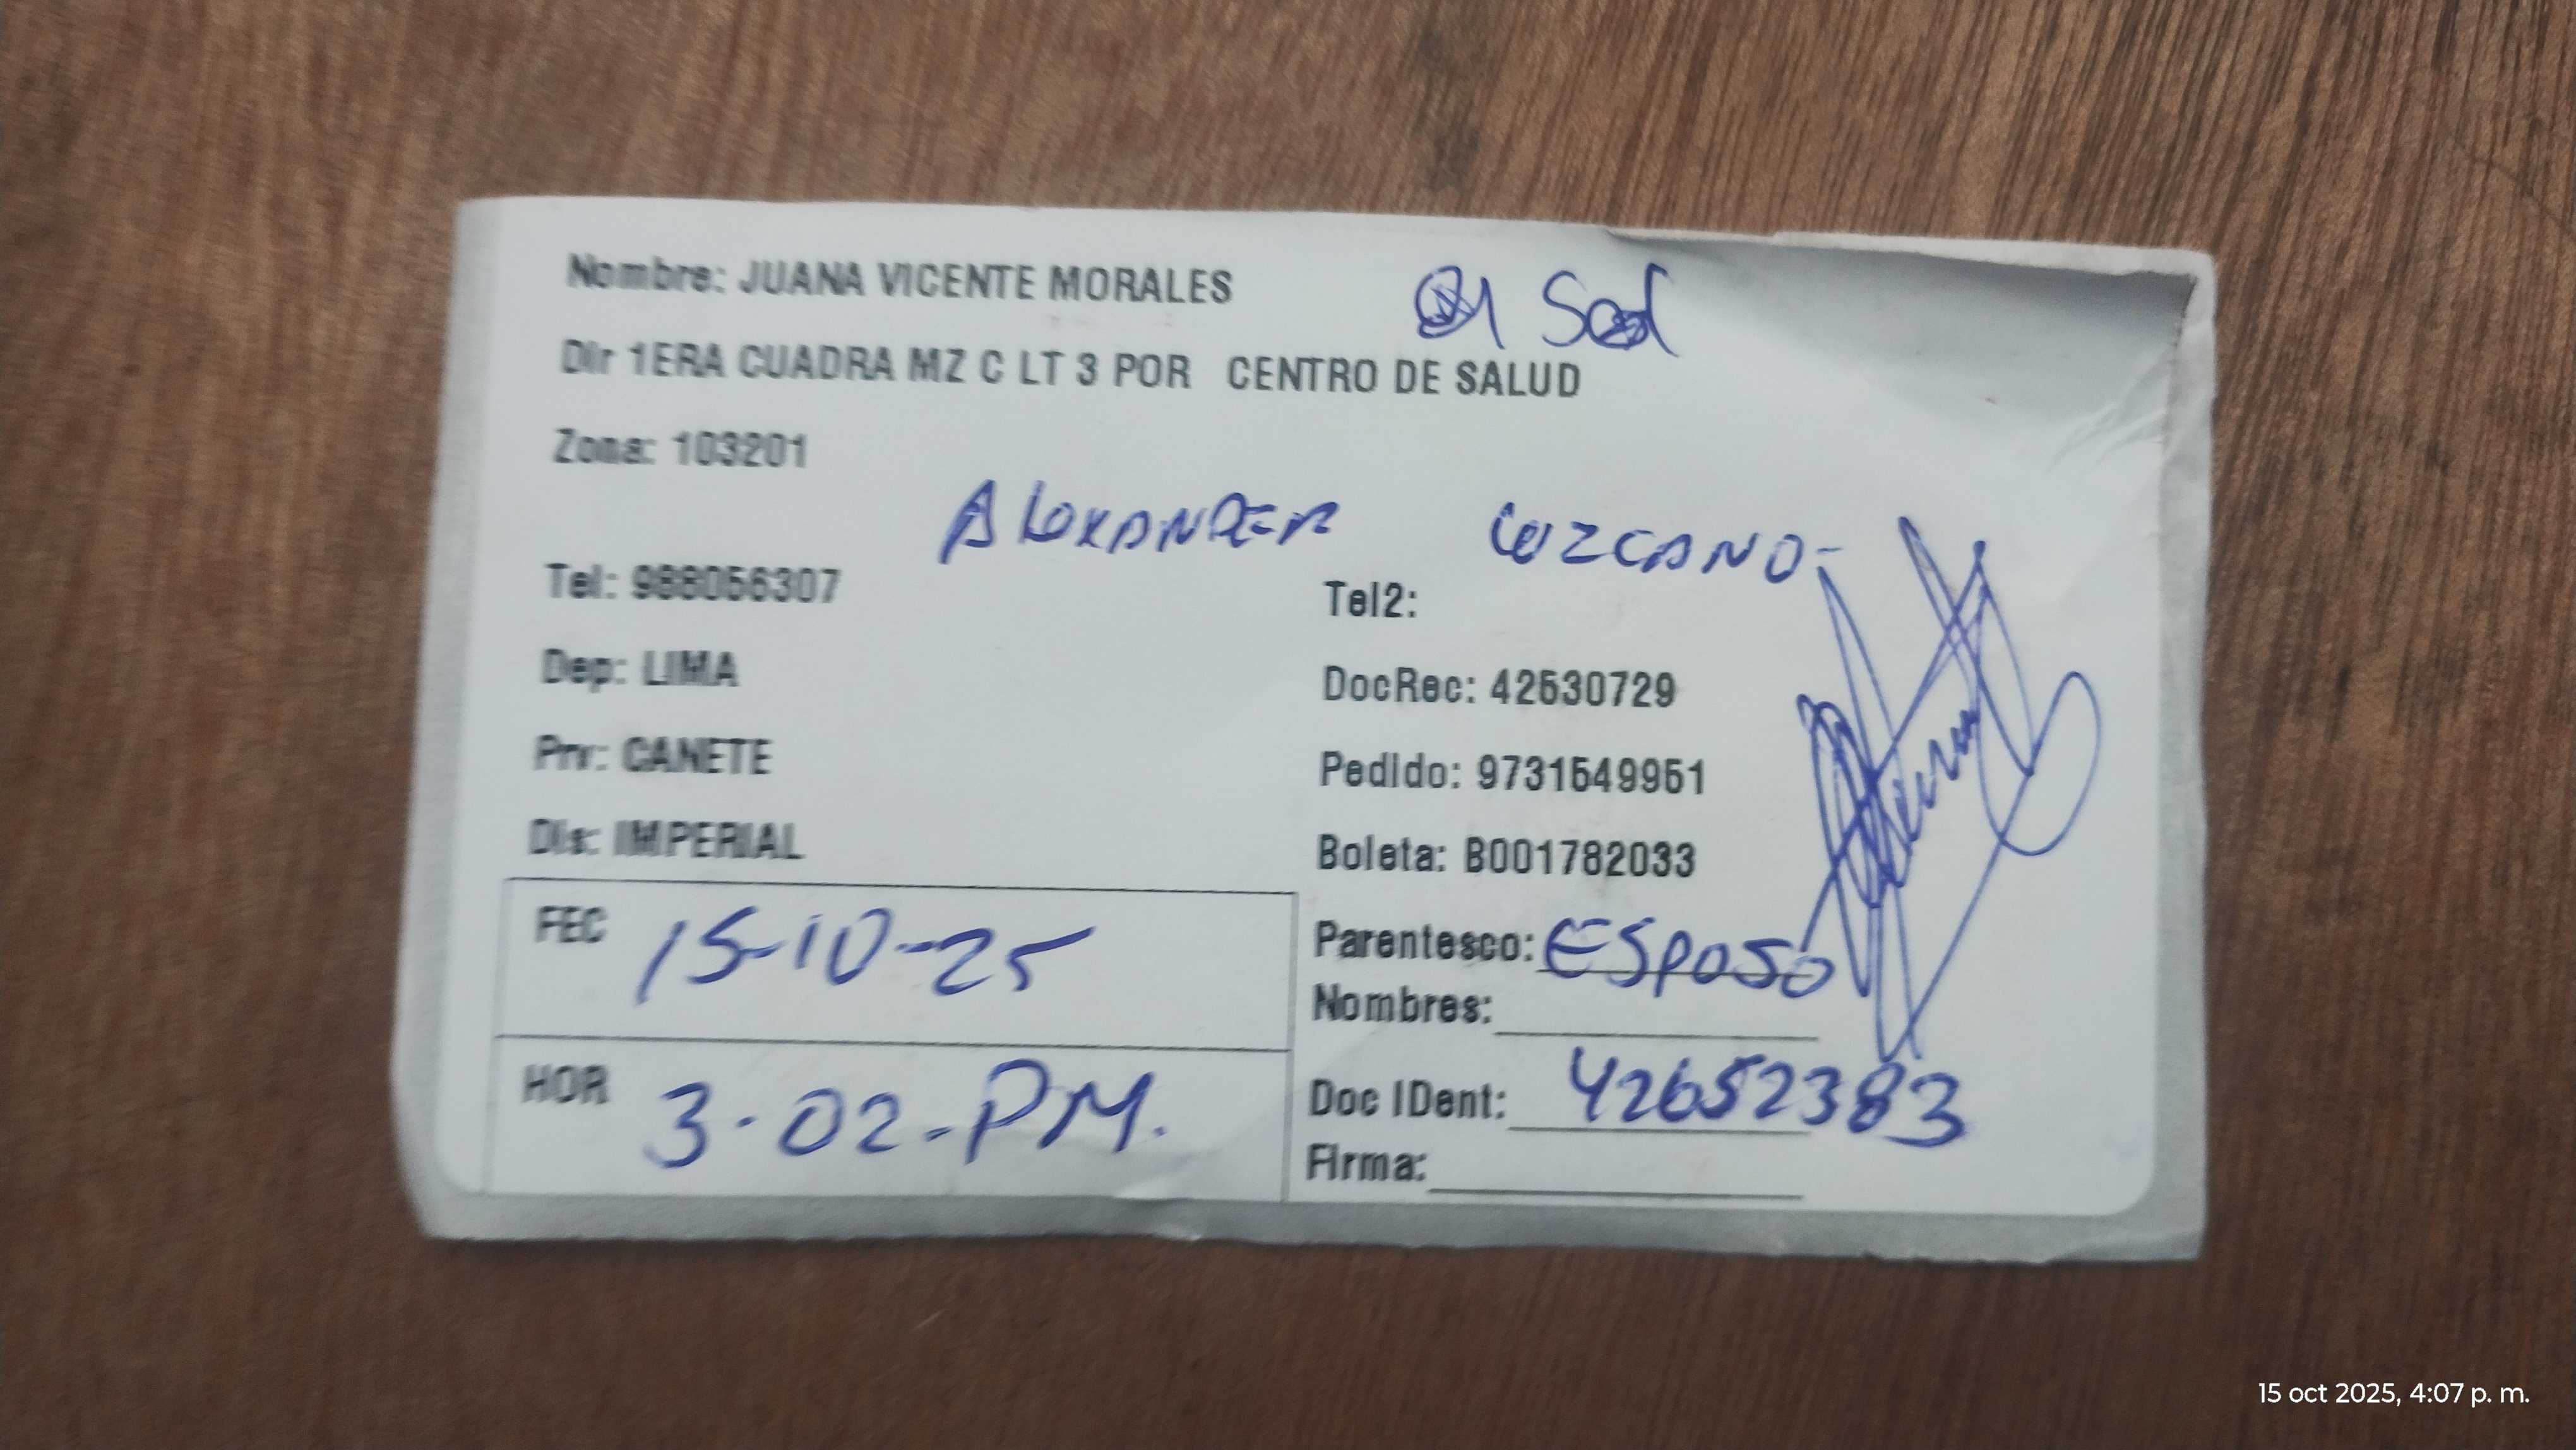 Nombre: JUANA VICENTE MORALES
Dir 1ERA CUADRA MZ C LT 3 POR CENTRO DE SALUD
Zona: 103201
ALEXANDER LOZCANO-
Tel: 988056307 Tel2:
Dep: LIMA DocRec: 42530729
Prv: CANETE Pedido: 9731549951
Dis: IMPERIAL Boleta: B001782033
FEC 15-10-25 Parentesco: ESPOSO
Nombres:
HOR 3-02-PM. Doc IDent: 42652383
Firma:
15 oct 2025, 4:07 p. m.